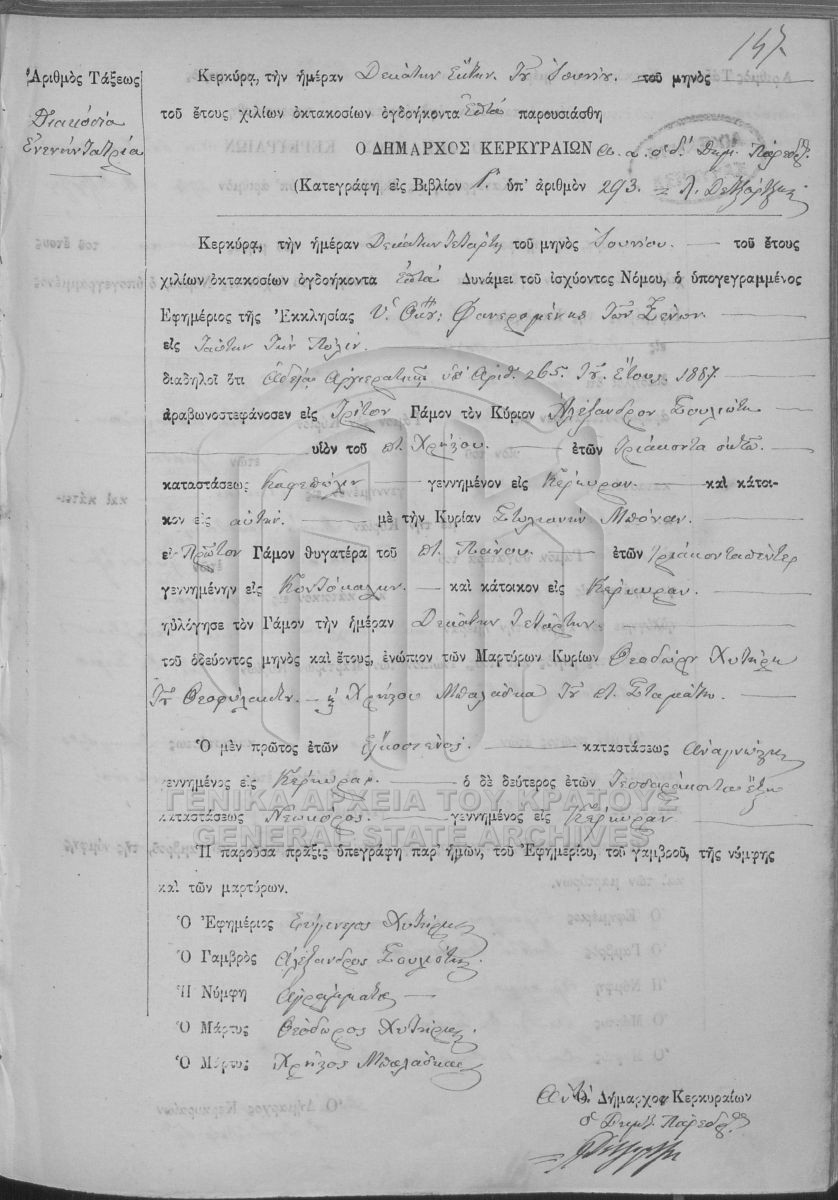 147.
Ἀριθμὸς Τάξεως
Διακόσια
Ἐνενήντα τρία
Κερκύρα, τὴν ἡμέραν Δεκάτην Ἕκτην τοῦ Ἰουνίου. τοῦ μηνὸς
τοῦ ἔτους χιλίων ὀκτακοσίων ὀγδοήκοντα Ἑπτά παρουσιάσθη
Ὁ ΔΗΜΑΡΧΟΣ ΚΕΡΚΥΡΑΙΩΝ
(Κατεγράφη εἰς Βιβλίον Γ. ὑπ' ἀριθμὸν 293.
Κερκύρα, τὴν ἡμέραν Δεκάτην τετάρτη τοῦ μηνὸς Ἰουνίου. τοῦ ἔτους
χιλίων ὀκτακοσίων ὀγδοήκοντα Ἑπτά Δυνάμει τοῦ ἰσχύοντος Νόμου, ὁ ὑπογεγραμμένος
Ἐφημέριος τῆς Ἐκκλησίας Φανερωμένης τῶν Ξένων.
εἰς ταύτην τὴν Πόλιν.
διαδηλοῖ ὅτι ἀδείᾳ Ἀρχιερατικῇ ὑπ' Ἀριθ. 265. τοῦ Ἔτους 1887.
ἀραβωνοστεφάνοσεν εἰς Τρίτον Γάμον τὸν Κύριον Ἀλέξανδρον Σουλιώτη
υἱὸν τοῦ π. Χρήστου. ἐτῶν τριάκοντα ὀκτώ.
καταστάσεως Καφεπώλην γεννημένον εἰς Κέρκυραν. καὶ κάτοι-
κον εἰς αὐτήν. μὲ τὴν Κυρίαν Στυλιανὴν Μπόναν.
εἰ Πρῶτον Γάμον θυγατέρα τοῦ π. Πάνου. ἐτῶν τριάκονταπέντε
γεννημένην εἰς Κοντόκαλην. καὶ κάτοικον εἰς Κέρκυραν.
ηὐλόγησε τὸν Γάμον τὴν ἡμέραν Δεκάτην τετάρτην.
τοῦ ὁδεύοντος μηνὸς καὶ ἔτους, ἐνώπιον τῶν Μαρτύρων Κυρίων Θεοδώρου Χυτήρη
τοῦ Θεοφυλάκτου. καὶ Χρήστου Μπαλάδκα τοῦ π. Σταμάτη.
Ὁ μὲν πρῶτος ἐτῶν εἴκοσι ἑνός. καταστάσεως Ἀναγνώστης
γεννημένος εἰς Κέρκυραν. ὁ δὲ δεύτερος ἐτῶν Τεσσαράκοντα ἕξη
καταστάσεως Νεωκόρος. γεννημένος εἰς Κέρκυραν
ΓΕΝΙΚΑ ΑΡΧΕΙΑ ΤΟΥ ΚΡΑΤΟΥΣ
GENERAL STATE ARCHIVES
Ἡ παροῦσα πράξις ὑπεγράφη παρ' ἡμῶν, τοῦ Ἐφημερίου, τοῦ γαμβροῦ, τῆς νύμφης
καὶ τῶν μαρτύρων.
Ὁ Ἐφημέριος Χυτήρης
Ὁ Γαμβρὸς Ἀλέξανδρος Σουλιώτης
Ἡ Νύμφη Ἀγράμματος
Ὁ Μάρτυς Θεόδωρος Χυτήρης
Ὁ Μάρτυς Χρῆστος Μπαλάδκας
Ὁ Δήμαρχος Κερκυραίων
ὁ Δημ. Πάρεδρος